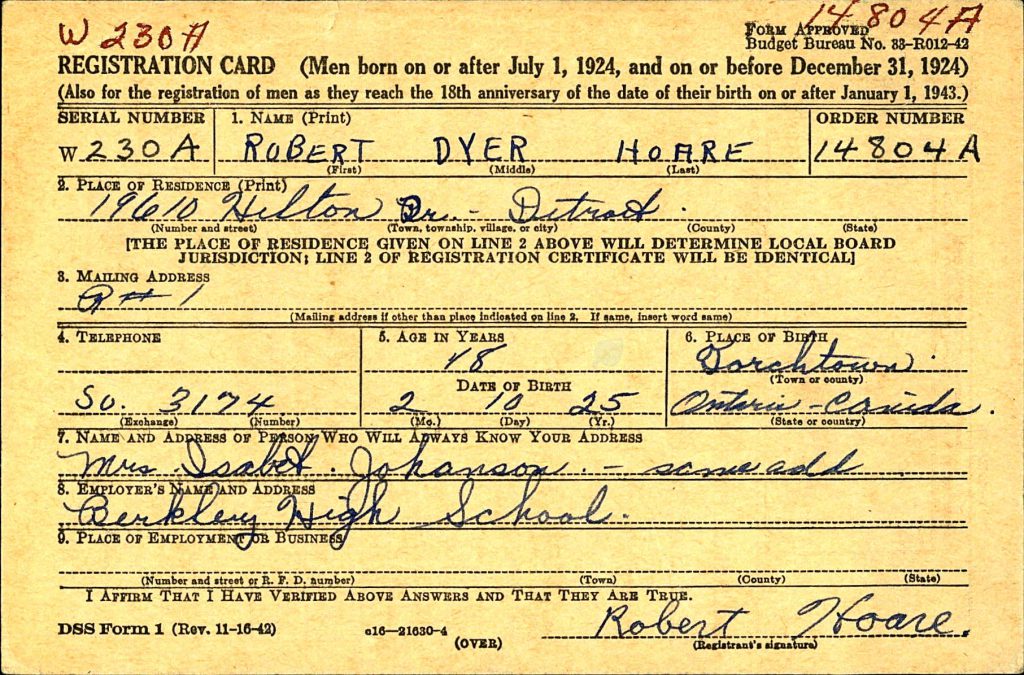 W 230 A 14804A
FORM APPROVED
Budget Bureau No. 33-R012-42
REGISTRATION CARD (Men born on or after July 1, 1924, and on or before December 31, 1924)
(Also for the registration of men as they reach the 18th anniversary of the date of their birth on or after January 1, 1943.)
SERIAL NUMBER 1. NAME (Print) ORDER NUMBER
W 230 A ROBERT DYER HOARE 14804 A
(First) (Middle) (Last)
2. PLACE OF RESIDENCE (Print)
19610 Hilton Dr. - Detroit.
(Number and street) (Town, township, village, or city) (County) (State)
[THE PLACE OF RESIDENCE GIVEN ON LINE 2 ABOVE WILL DETERMINE LOCAL BOARD
JURISDICTION; LINE 2 OF REGISTRATION CERTIFICATE WILL BE IDENTICAL]
3. MAILING ADDRESS
R # 1
(Mailing address if other than place indicated on line 2. If same, insert word same)
4. TELEPHONE 5. AGE IN YEARS 6. PLACE OF BIRTH
18
(Town or county)
DATE OF BIRTH
So. 3174 2 10 25 Ontario - Canada.
(Exchange) (Number) (Mo.) (Day) (Yr.) (State or country)
7. NAME AND ADDRESS OF PERSON WHO WILL ALWAYS KNOW YOUR ADDRESS
Mrs. Isabel Johanson. - same add
8. EMPLOYER'S NAME AND ADDRESS
Berkley High School.
9. PLACE OF EMPLOYMENT OR BUSINESS
(Number and street or R. F. D. number) (Town) (County) (State)
I AFFIRM THAT I HAVE VERIFIED ABOVE ANSWERS AND THAT THEY ARE TRUE.
Robert Hoare.
DSS Form 1 (Rev. 11-16-42) c16—21630-4
(OVER) (Registrant's signature)